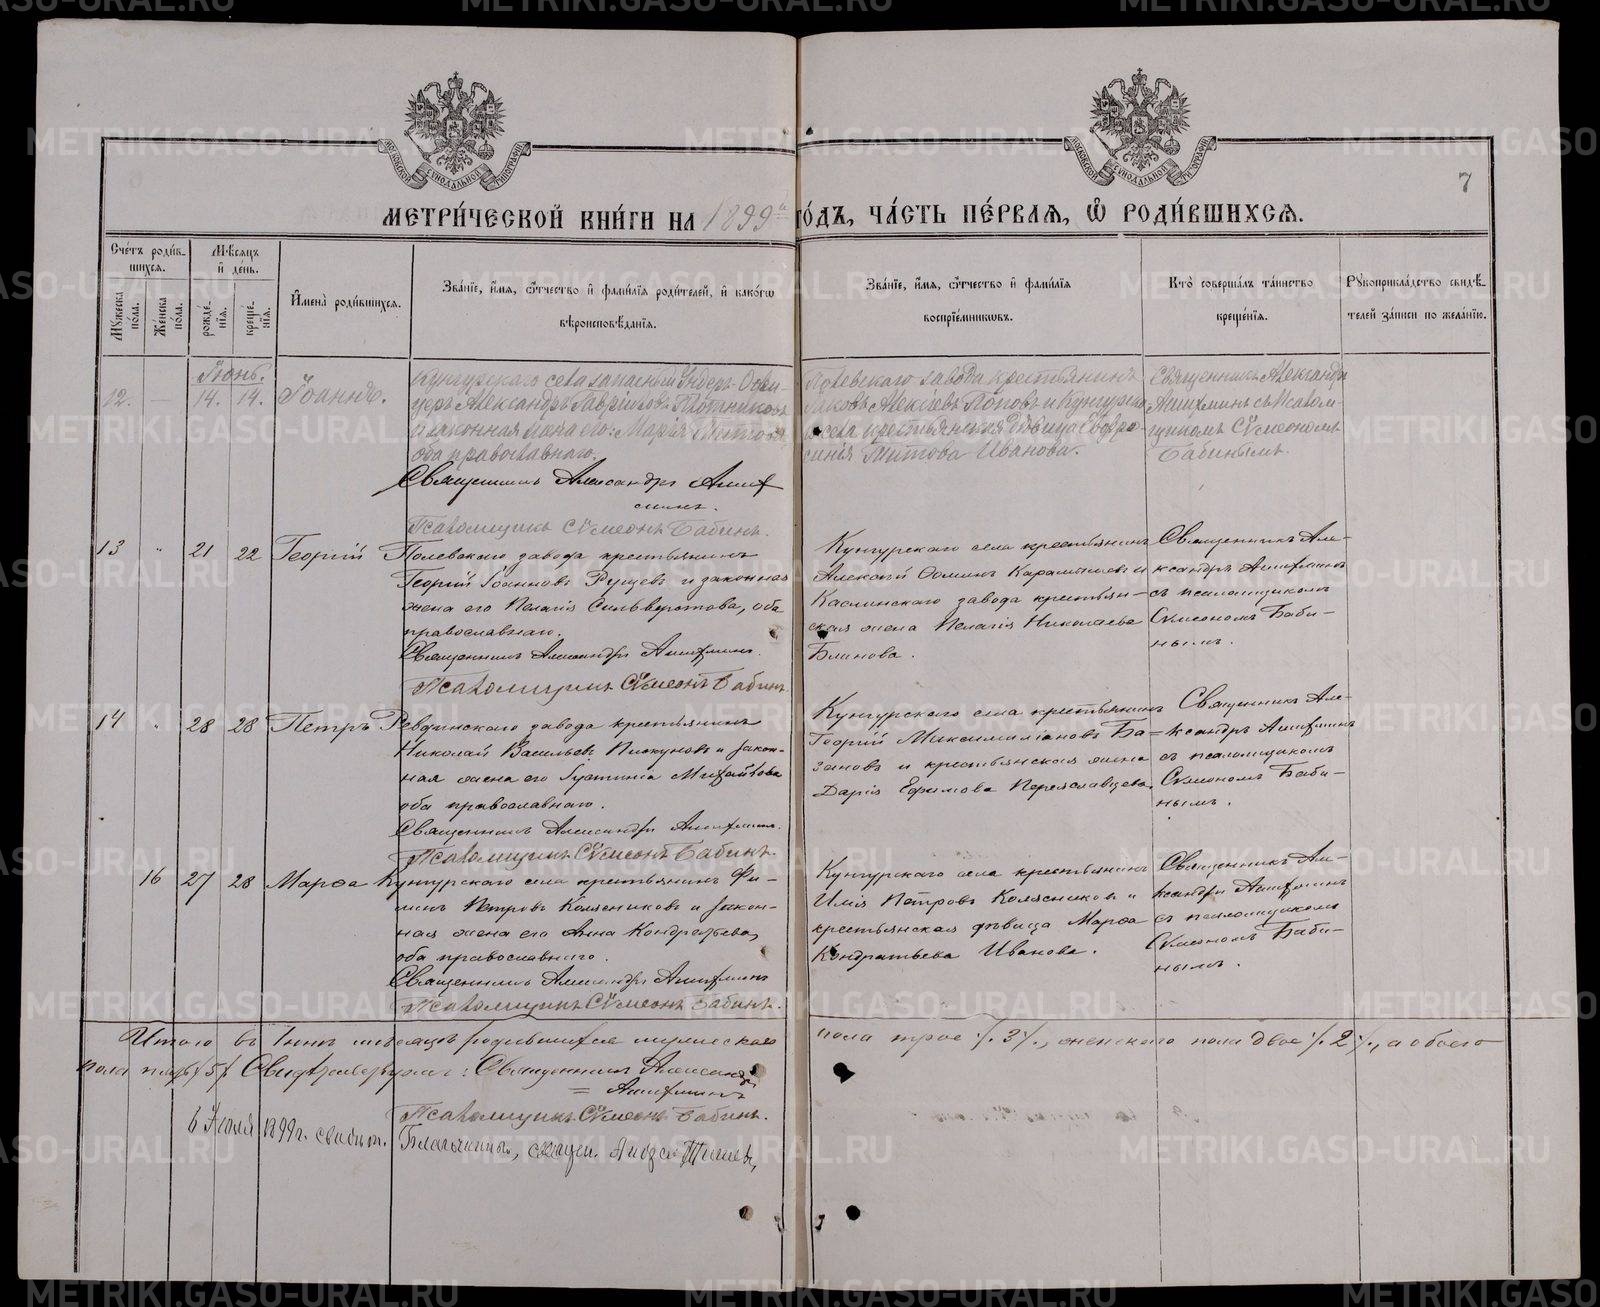 7
МЕТРИ́ЧЕСКОЙ КНИ́ГИ НА 1899й ГО́ДЪ, ЧА́СТЬ ПЕ́РВАЯ, Ѿ РОДИ́ВШИХСЯ.
Сче́тъ роди́в-
шихся.
Мѣсяцъ
и де́нь.
Му́жеска по́ла.
Же́нска по́ла.
рожде́-нія.
креще́-нія.
Имена̀ роди́вшихся.
Зва́ніе, и́мя, о́тчество и фами́лія роди́телей, и како́гѡ
вѣроисповѣ́данія.
Зва́ніе, и́мя, о́тчество и фами́лія
воспріе́мниковъ.
Кто̀ соверша́лъ та́инство
креще́нія.
Рꙋкоприкла́дство свидѣ́-
телей за́писи по жела́нію.
Іюнь.
12. — 14. 14. Іоаннъ.
Кунгурскаго села запасный Ундеръ-Офи-
церъ Александръ Гавріиловъ Плотниковъ
и законная жена его: Марія Титова
оба православнаго.
Священникъ Александръ Ашиф
минъ.
Псаломщикъ Сѵмеонъ Бабинъ.
Полевскаго завода крестьянинъ
Іаковъ Алексіевъ Поповъ и Кунгурска
го села крестьянская дѣвица Евфро-
синія Титова Иванова.
Священникъ Александръ
съ Псалом-
щикомъ Сѵмеономъ
Бабинымъ.
13 " 21 22 Георгій
Полевскаго завода крестьянинъ
Георгій Іоанновъ и законная
жена его Пелагія Сильверстова, оба
православнаго.
Священникъ Александръ
Псаломщикъ Сѵмеонъ Бабинъ.
Кунгурскаго села крестьянинъ
Алексій Ѳоминъ Карамышевъ и
Каслинскаго завода крестьян-
ская жена Пелагія Николаева
Блинова.
Священникъ Але-
ксандръ
съ псаломщикомъ
Сѵмеономъ Баби-
нымъ.
14 " 28 28 Петръ
Ревдинскаго завода крестьянинъ
Николай Васильевъ Пискуновъ и закон-
ная жена его Іустинія Михайлова
оба православнаго.
Священникъ Александръ
Псаломщикъ Сѵмеонъ Бабинъ.
Кунгурскаго села крестьянинъ
Георгій Максимиліановъ Ба-
зановъ и крестьянская жена
Дарія Ефимова Переяславцева.
Священникъ Але-
ксандръ
съ псаломщикомъ
Сѵмеономъ Баби-
нымъ.
16 27 28 Марѳа
Кунгурскаго села крестьянинъ Фи-
липъ Петровъ Колясниковъ и закон-
ная жена его Анна Кондратьева,
оба православнаго.
Священникъ Александръ
Псаломщикъ Сѵмеонъ Бабинъ.
Кунгурскаго села крестьянинъ
Илія Петровъ Колясниковъ и
крестьянская дѣвица Марѳа
Кондратьева Иванова.
Священникъ Але-
ксандръ
съ псаломщикомъ
Сѵмеономъ Баби-
нымъ.
Итого въ Іюнѣ мѣсяцѣ родившихся мужескаго
пола трое /.3/., женскаго пола двое /.2/., а обоего
пола пять /5/ Свидѣтельствуемъ: Священникъ Александръ
Псаломщикъ Сѵмеонъ Бабинъ.
6 Іюля 1899 г.
METRIKI.GASO-URAL.RU